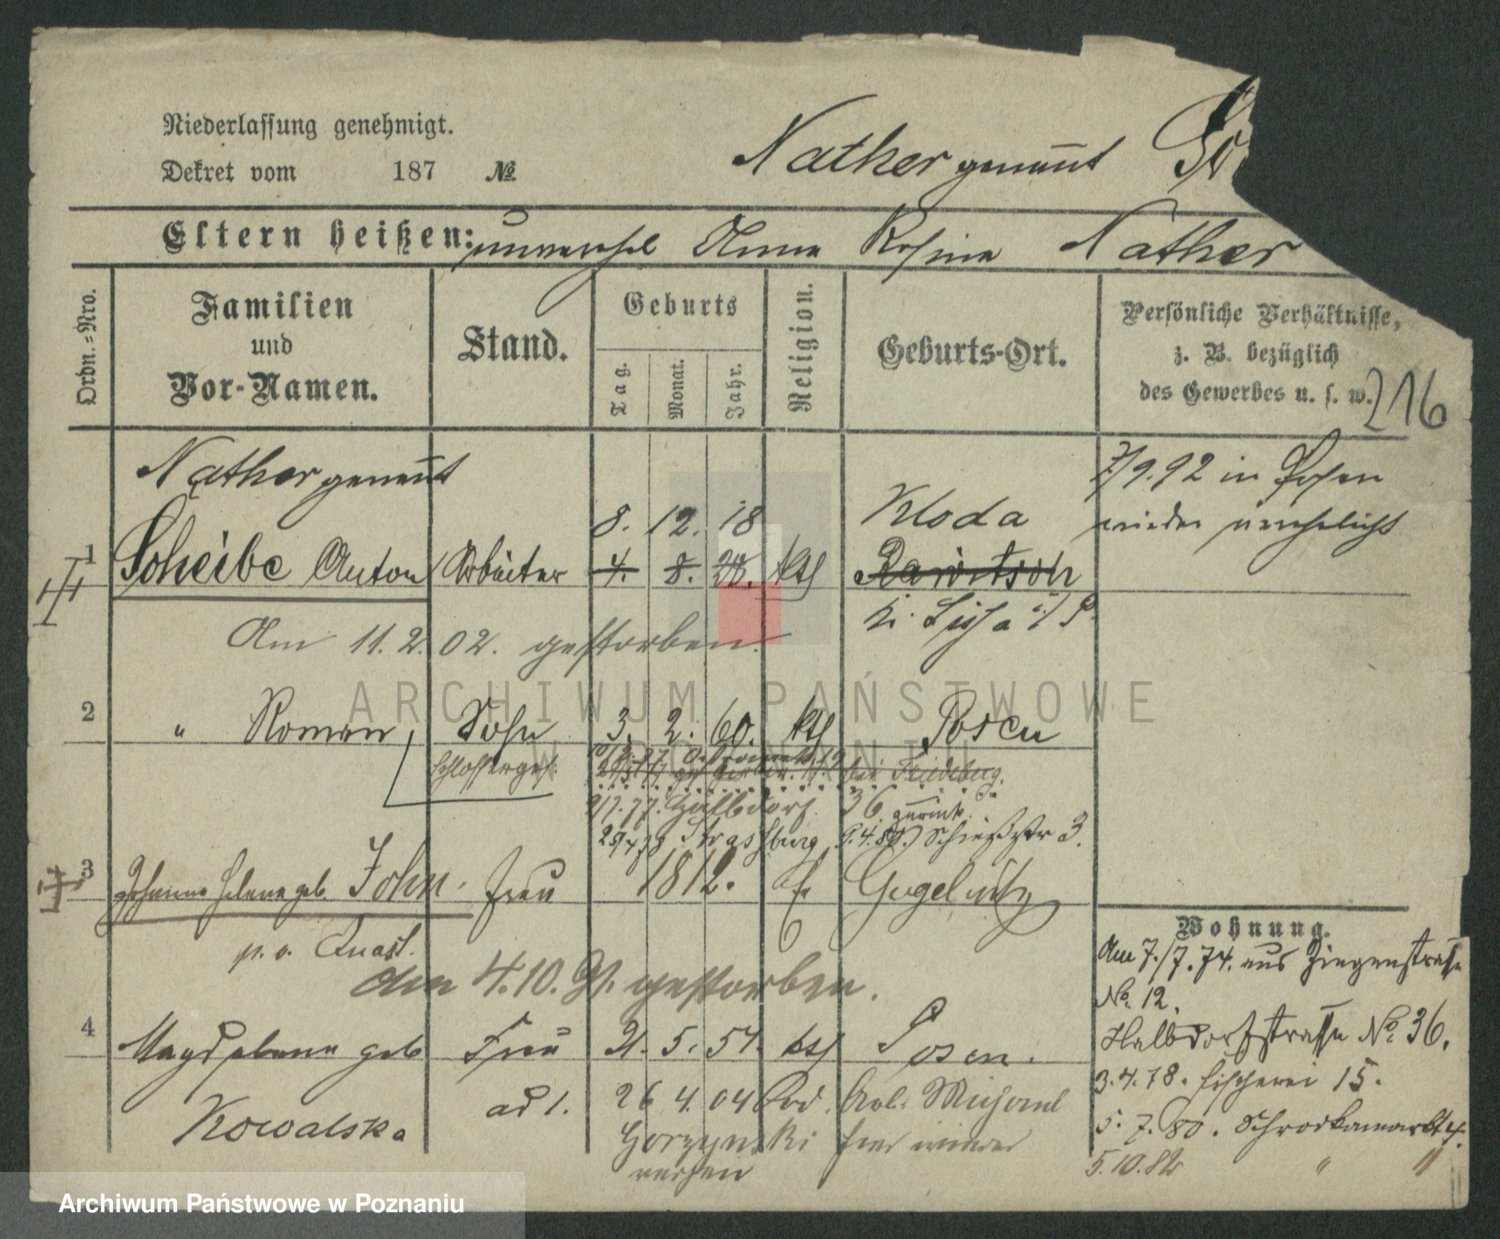 Niederlassung genehmigt.
Dekret vom 187 №
Nather genannt
Eltern heißen: unverehel Anna Rosina Nather
Ordn.-Nro.
Familien
und
Vor-Namen.
Stand.
Geburts
Tag.
Monat.
Jahr.
Religion.
Geburts-Ort.
Persönliche Verhältnisse,
z. B. bezüglich
des Gewerbes u. s. w.
216
Nather genannt
1 Scheibe Anton Arbeiter
8. 12. 18
4. 8. 28. kth
Kloda
Rawitsch
K. Lissa i/P.
7/9.92 in Posen
wieder verehelicht
Am 11.2.02. gestorben.
2 " Roman, Sohn 3. 2. 60. kth Posen
Schlosserges.
bei Friedeberg.
9/7.77. Halbdorf 36 zurück
Strassburg 9.4.80. Schießstr 3.
3 Johanna Helena geb. John. Frau 1812. Gugelwitz
am 4.10.91. gestorben.
4 Magdalena geb Frau 21. 5. 57. kth Posen.
Kowalska
ad 1.
26 4. 04
Gorzynski
Wohnung.
Am 7./7.74. aus Ziegenstrasse
No. 12.
Halbdorfstrasse No. 36.
3.4.78. Fischerei 15.
5.7.80. Schrodkamarkt 4.
5.10.82 " "
ARCHIWUM PAŃSTWOWE
W POZNANIU
Archiwum Państwowe w Poznaniu